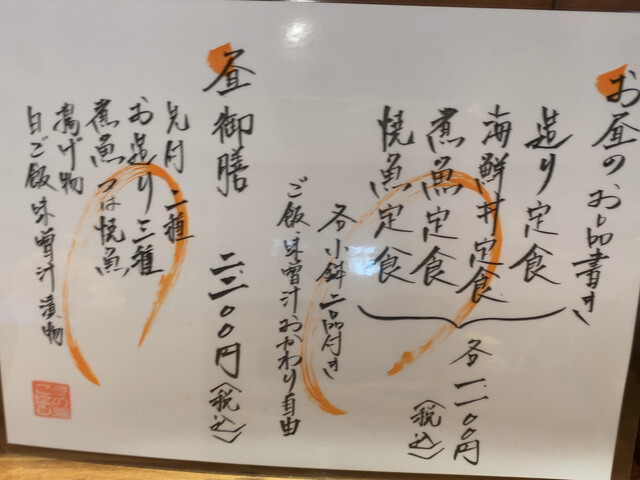 お昼のお品書き
造り定食
海鮮丼定食
煮魚定食
焼魚定食
各一一〇〇円
(税込)
各小鉢二品付き
ご飯、味噌汁おかわり自由
昼御膳 二二〇〇円(税込)
先付二種
お造り三種
煮魚又は焼魚
揚げ物
白ご飯 味噌汁 漬物